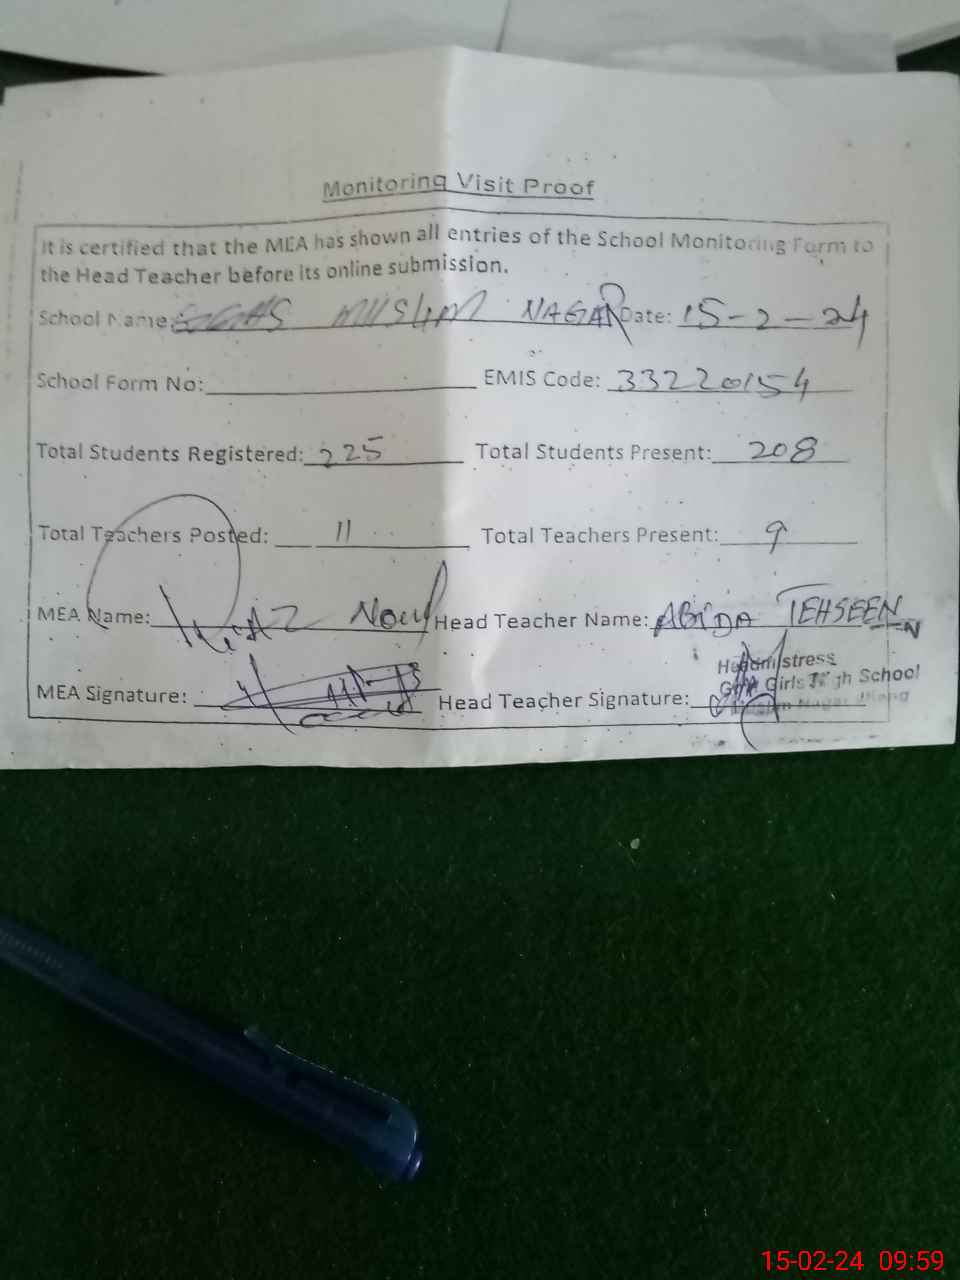 Monitoring Visit Proof
It is certified that the MEA has shown all entries of the School Monitoring Form to
the Head Teacher before its online submission.
School Name: GGHS MUSLIM NAGAR Date: 15-2-24
School Form No: EMIS Code: 33220154
Total Students Registered: 225 Total Students Present: 208
Total Teachers Posted: 11 Total Teachers Present: 9
MEA Name: Head Teacher Name: ABIDA TEHSEEN
MEA Signature: Head Teacher Signature:
Headmistress
Girls High School
Nagar Jhang
15-02-24 09:59